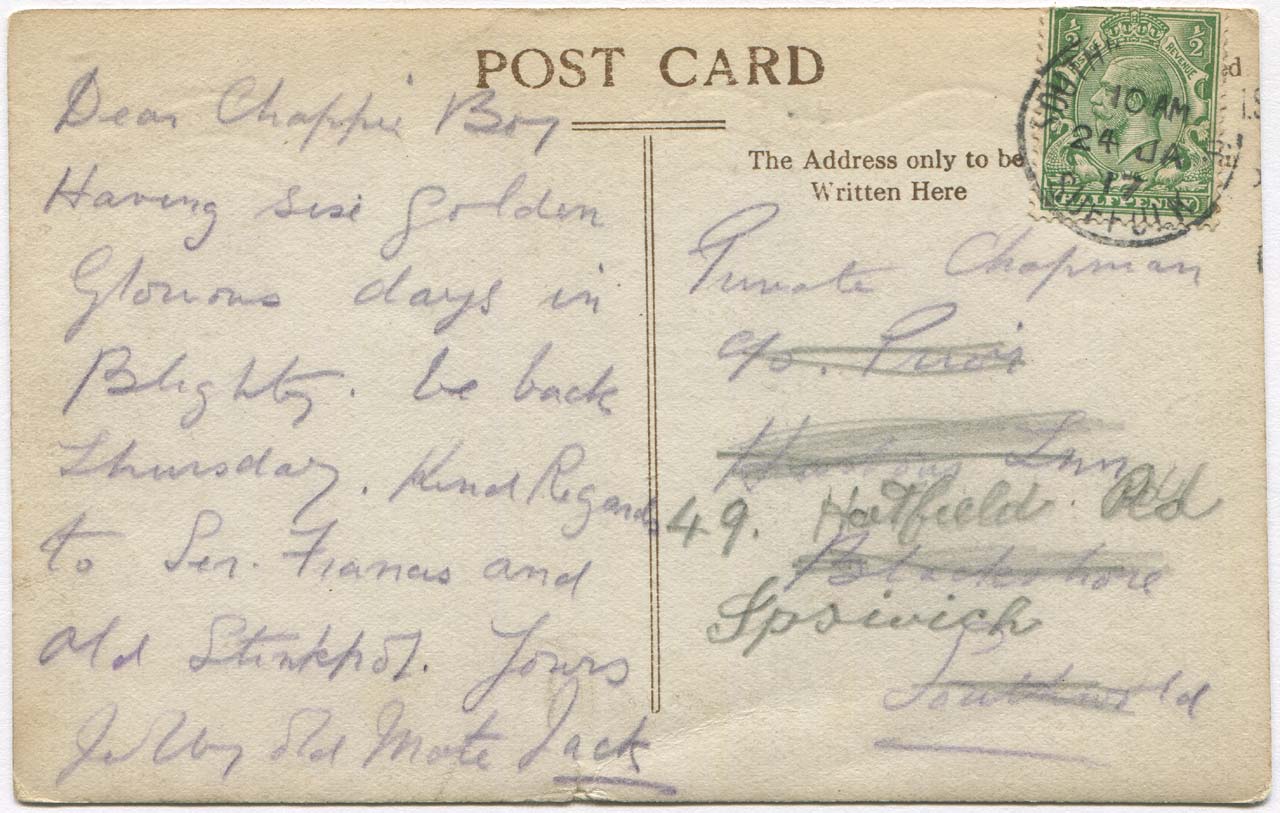 POST CARD
Dear Chappie Boy
Having sise golden
Glorious days in
Blighty. be back
Thursday. Kind Regards
to Ser. Francis and
old Stinkpot. Yours
Jolly old Mate Jack
The Address only to be
Written Here
Private Chapman
c/o.
Inn
49. Hatfield Rd
Blackshore
Ipswich
Southwold
½ ½
REVENUE
HALFPENNY
10 AM
24 JA
17
SUFFOLK